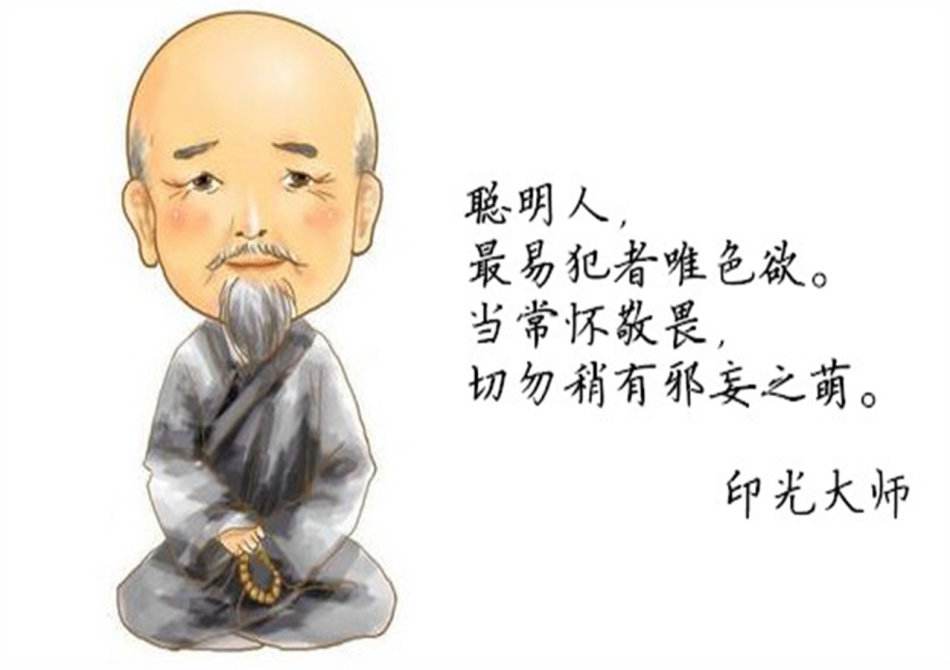 聪明人，
最易犯者唯色欲。
当常怀敬畏，
切勿稍有邪妄之萌。
印光大师